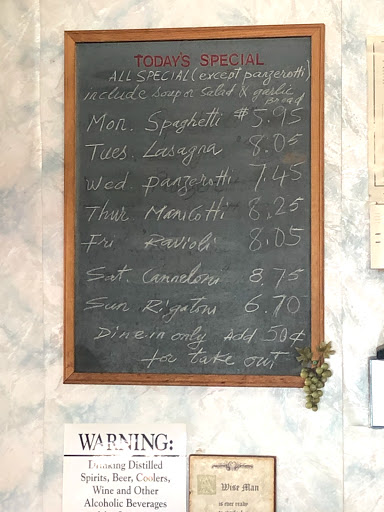 TODAY'S SPECIAL
ALL SPECIAL (except panzerotti)
include soup or salad & garlic
Bread
Mon. Spaghetti $5.95
Tues Lasagna 8.05
Wed panzerotti 7.45
Thur Manicotti 8.25
Fri Ravioli 8.05
Sat. Canneloni 8.75
Sun Rigatoni 6.70
Dine in only Add 50¢
for take out
WARNING:
Drinking Distilled
Spirits, Beer, Coolers,
Wine and Other
Alcoholic Beverages
A Wise Man
is ever ready